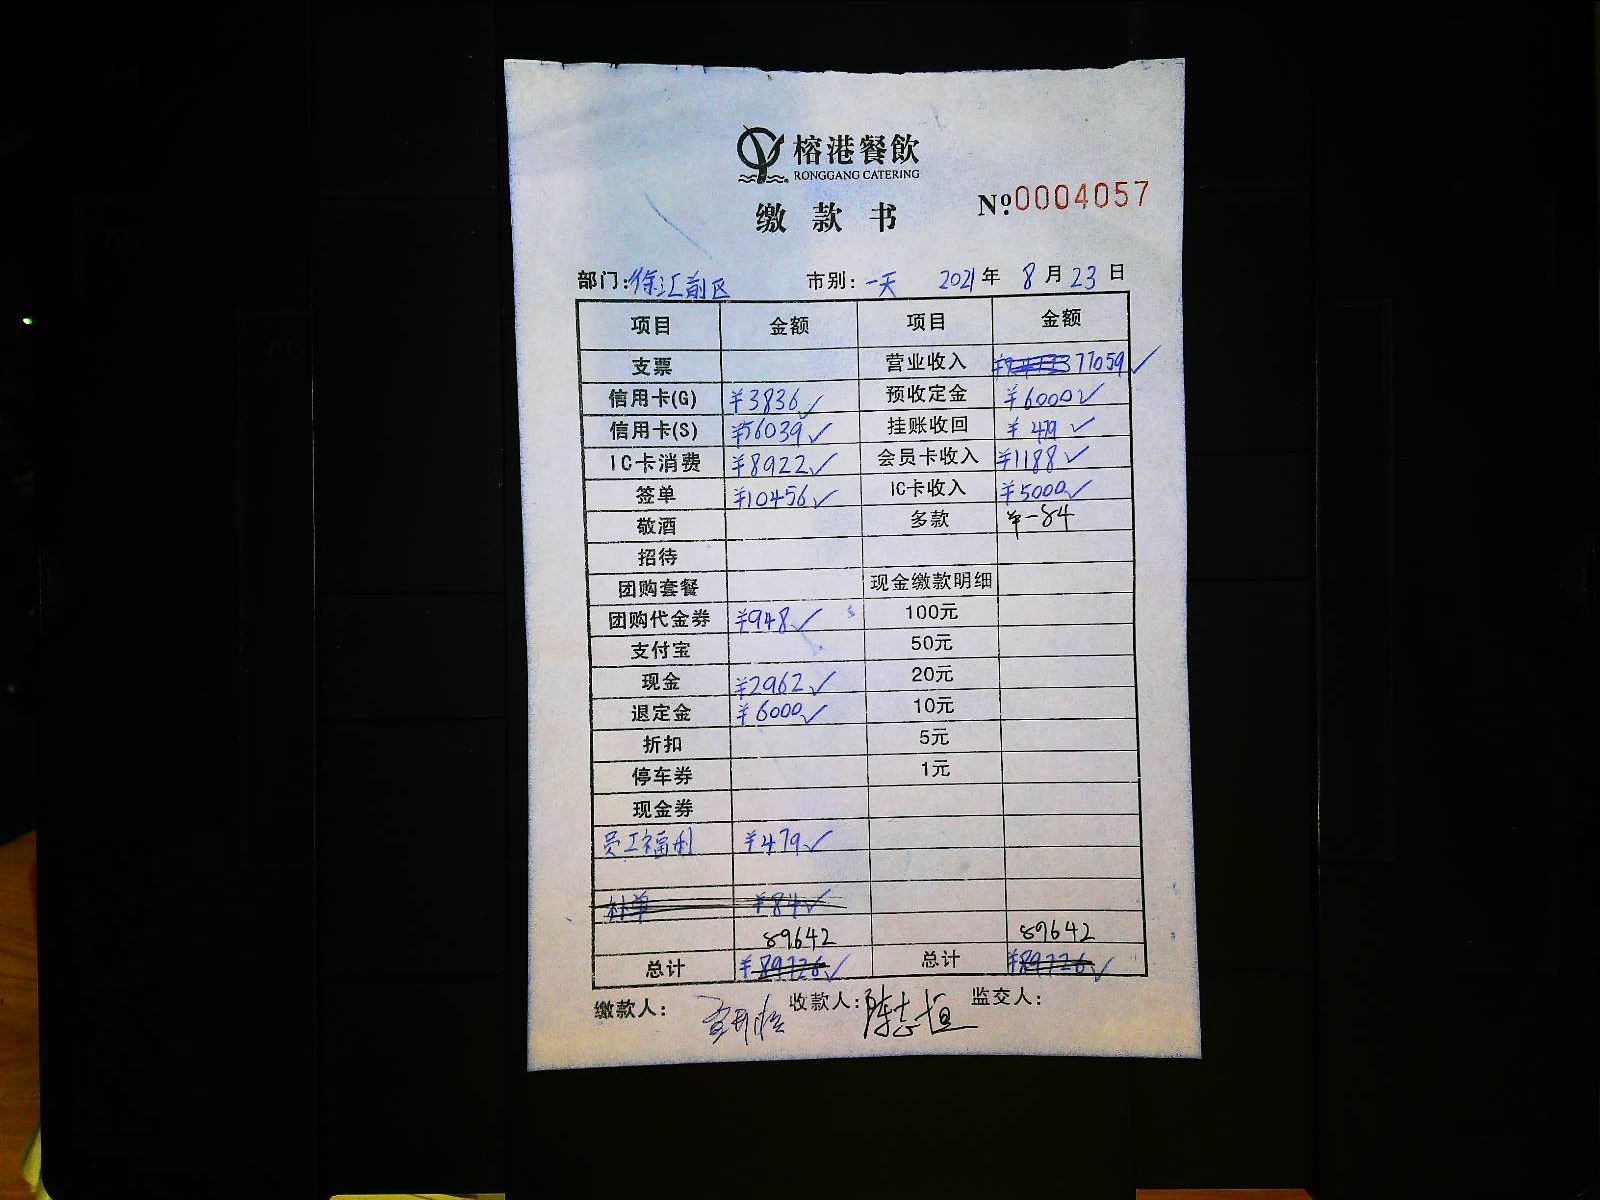 榕港餐飲
RONGGANG CATERING
缴款书 №0004057
部门:徐汇前区 市别:一天 2021年8月23日
项目 金额 项目 金额
支票 营业收入 77059✓
信用卡(G) ¥3836✓ 预收定金 ¥6000✓
信用卡(S) ¥56039✓ 挂账收回 ¥479✓
IC卡消费 ¥8922✓ 会员卡收入 ¥1188✓
签单 ¥10456✓ IC卡收入 ¥5000✓
敬酒 多款 ¥-84
招待
团购套餐 现金缴款明细
团购代金券 ¥948✓ 100元
支付宝 50元
现金 ¥2962✓ 20元
退定金 ¥6000✓ 10元
折扣 5元
停车券 1元
现金券
员工福利 ¥479✓
补单 ¥84✓
89642 89642
总计 ¥89726✓ 总计 ¥89726✓
缴款人: 收款人:陈志恒 监交人: